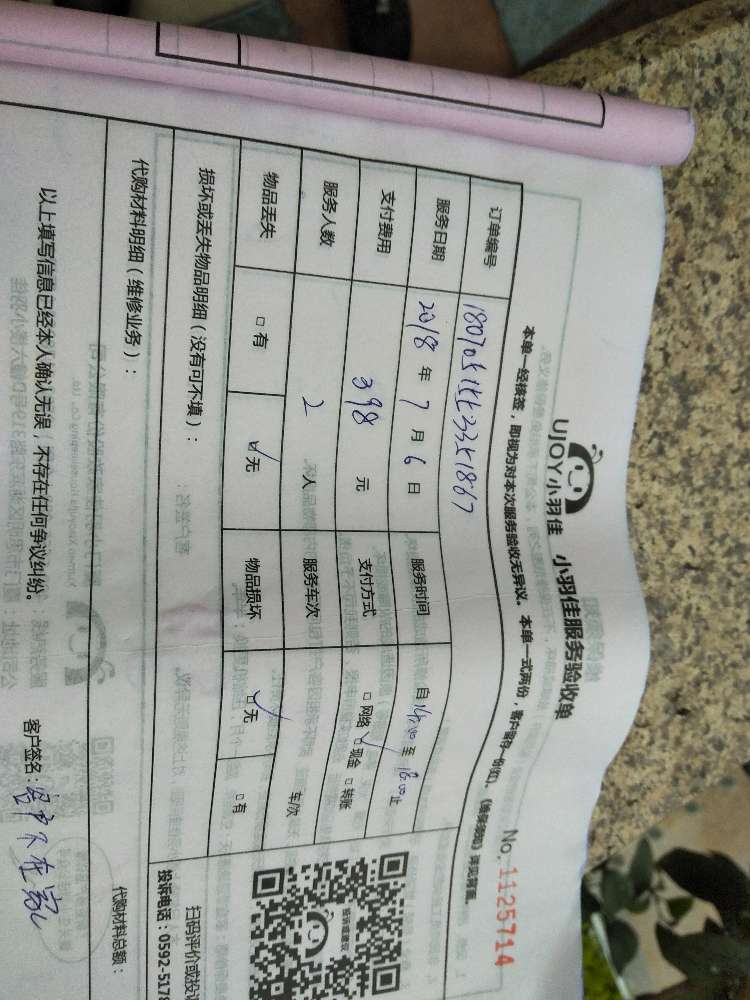 UJOY小羽佳 小羽佳服务验收单
No. 1125714
本单一经接签，即视为对本次服务验收无异议。本单一式两份，客户留存一份(红)。《维保须知》详见背面。
订单编号
服务日期 2018 年 7 月 6 日 服务时间 自 14:00 至 18:00 止
支付费用 398 元 支付方式 □ 网络 ☑ 现金 □ 转账
服务人数 2 人 服务车次 车/次
物品丢失 □ 有 ☑ 无 物品损坏 ☑ 无 □ 有
损坏或丢失物品明细（没有可不填）：
扫码评价或投
投诉电话：0592-5178
代购材料明细（维修业务）：
代购材料总额：
以上填写信息已经本人确认无误，不存在任何争议纠纷。
客户签名：客户不在家